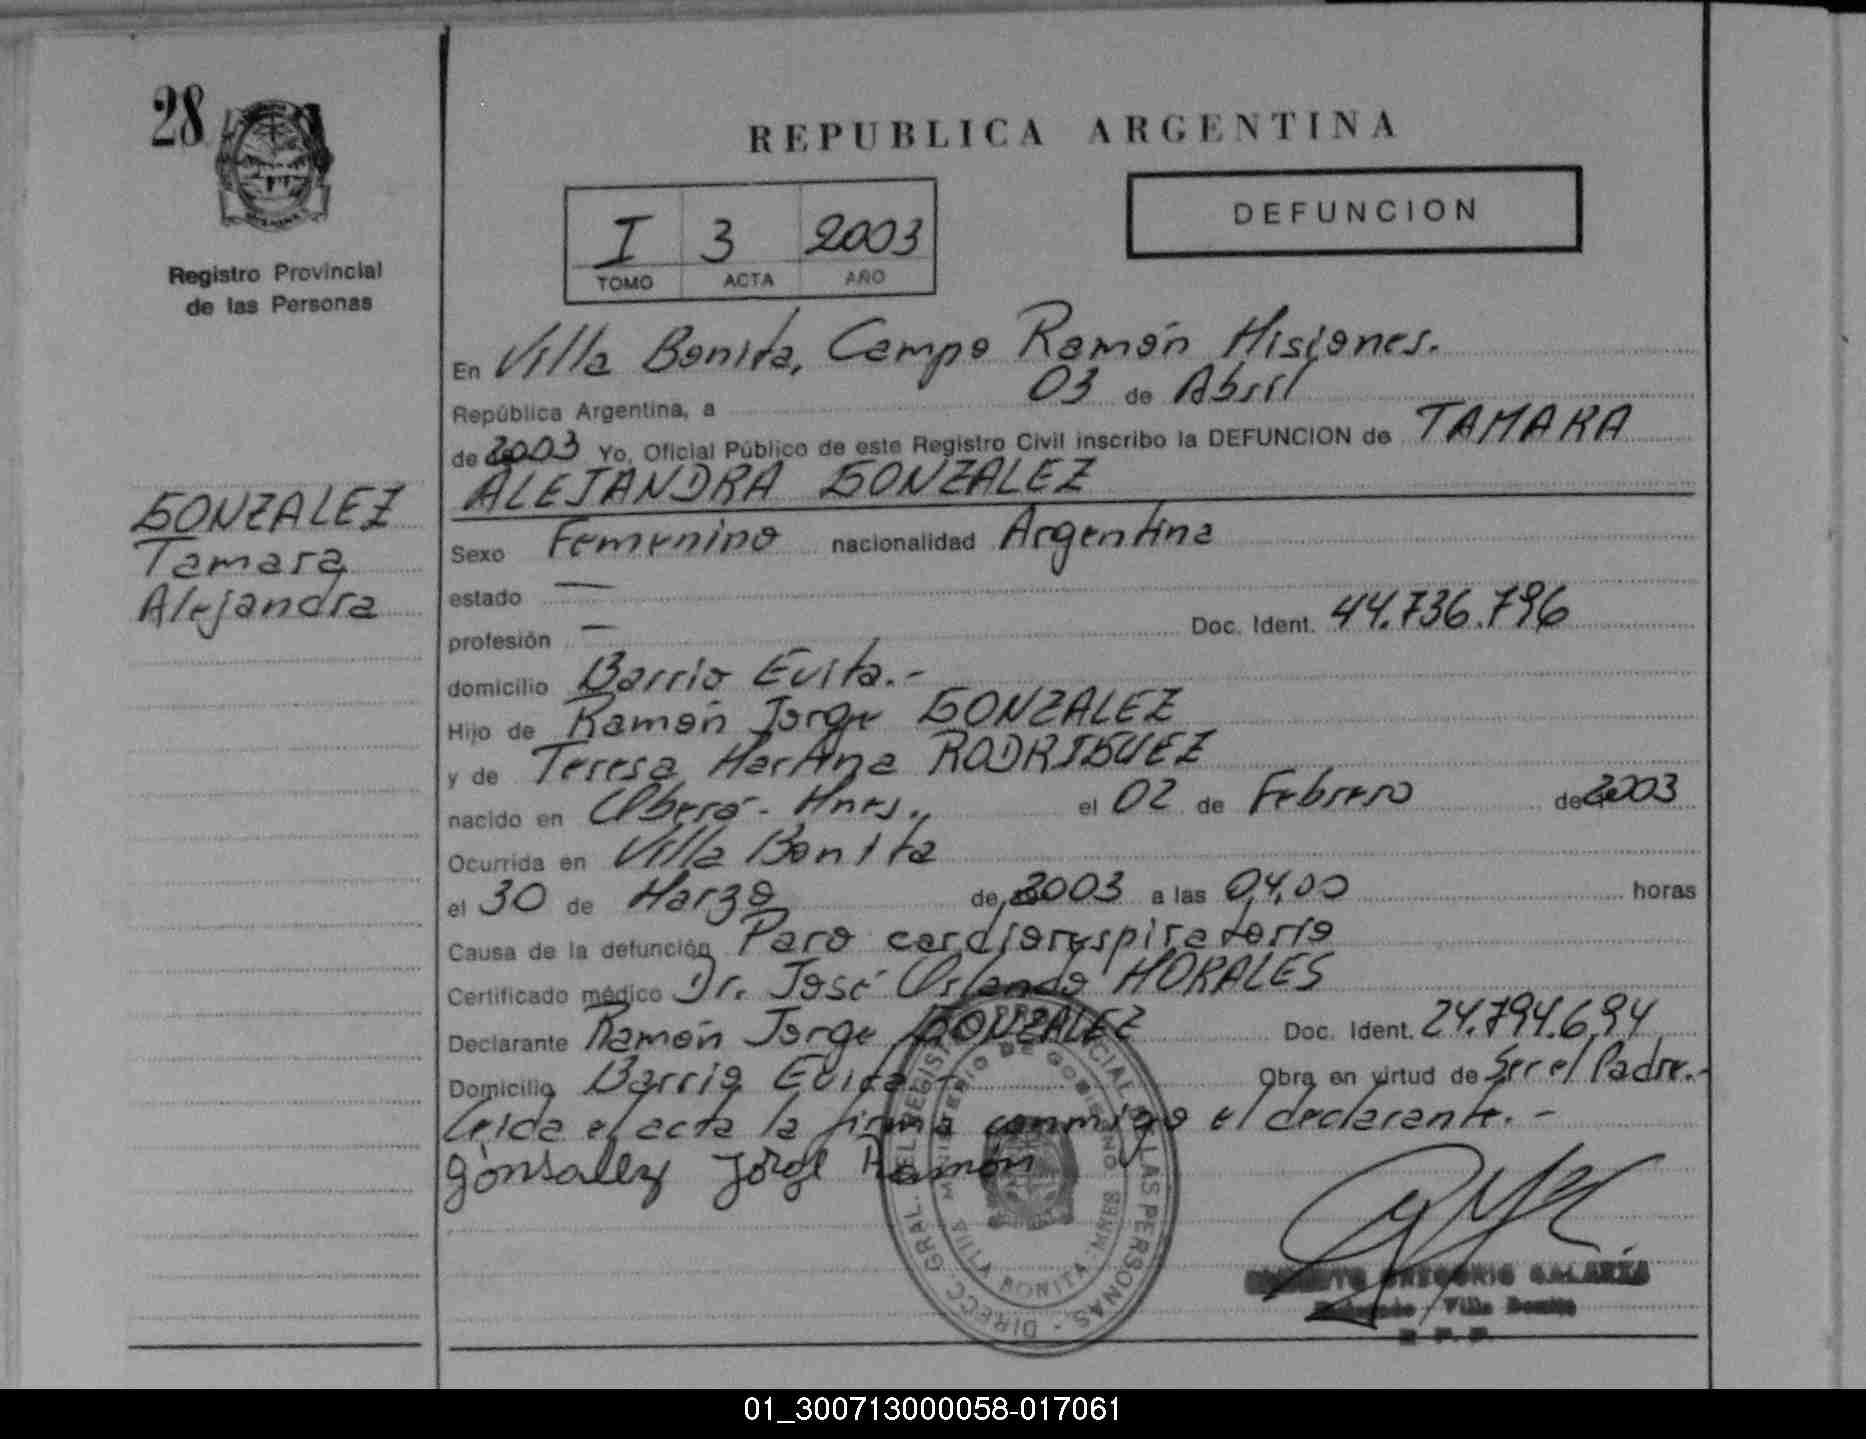 28
Registro Provincial
de las Personas
GONZALEZ
Tamara
Alejandra
REPUBLICA ARGENTINA
I 3 2003
TOMO ACTA AÑO
DEFUNCION
En Villa Bonita, Campo Ramón Misiones.
República Argentina, a 03 de Abril
de 2003 Yo, Oficial Público de este Registro Civil inscribo la DEFUNCION de TAMARA
ALEJANDRA GONZALEZ
Sexo Femenino nacionalidad Argentina
estado —
profesión — Doc. Ident. 44.736.796
domicilio Barrio Evita.-
Hijo de Ramón Jorge GONZALEZ
y de Teresa Martina RODRIGUEZ
nacido en Oberá - Mnes. el 02 de Febrero de 2003
Ocurrida en Villa Bonita
el 30 de Marzo de 2003 a las 04,00 horas
Causa de la defunción Paro cardiorespiratorio
Certificado médico Dr. José Orlando MORALES
Declarante Ramón Jorge GONZALEZ Doc. Ident. 24.794.694
Domicilio Barrio Evita.- Obra en virtud de Ser el Padre.-
Leida el acta la firma conmigo el declarante.-
gonsalez Jorge Ramón
DIRECC. GRAL. DEL REGISTRO PROVINCIAL DE LAS PERSONAS
MINISTERIO DE GOBIERNO
VILLA BONITA - MNES
GREGORIO GALARZA
Villa Bonita
01_300713000058-017061